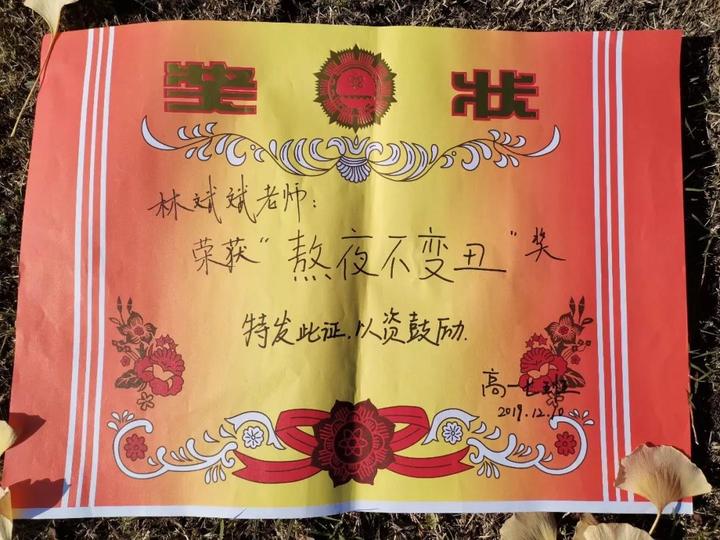 奖状
林斌斌老师:
荣获“熬夜不变丑”奖
特发此证,以资鼓励.
高一七班
2019.12.10